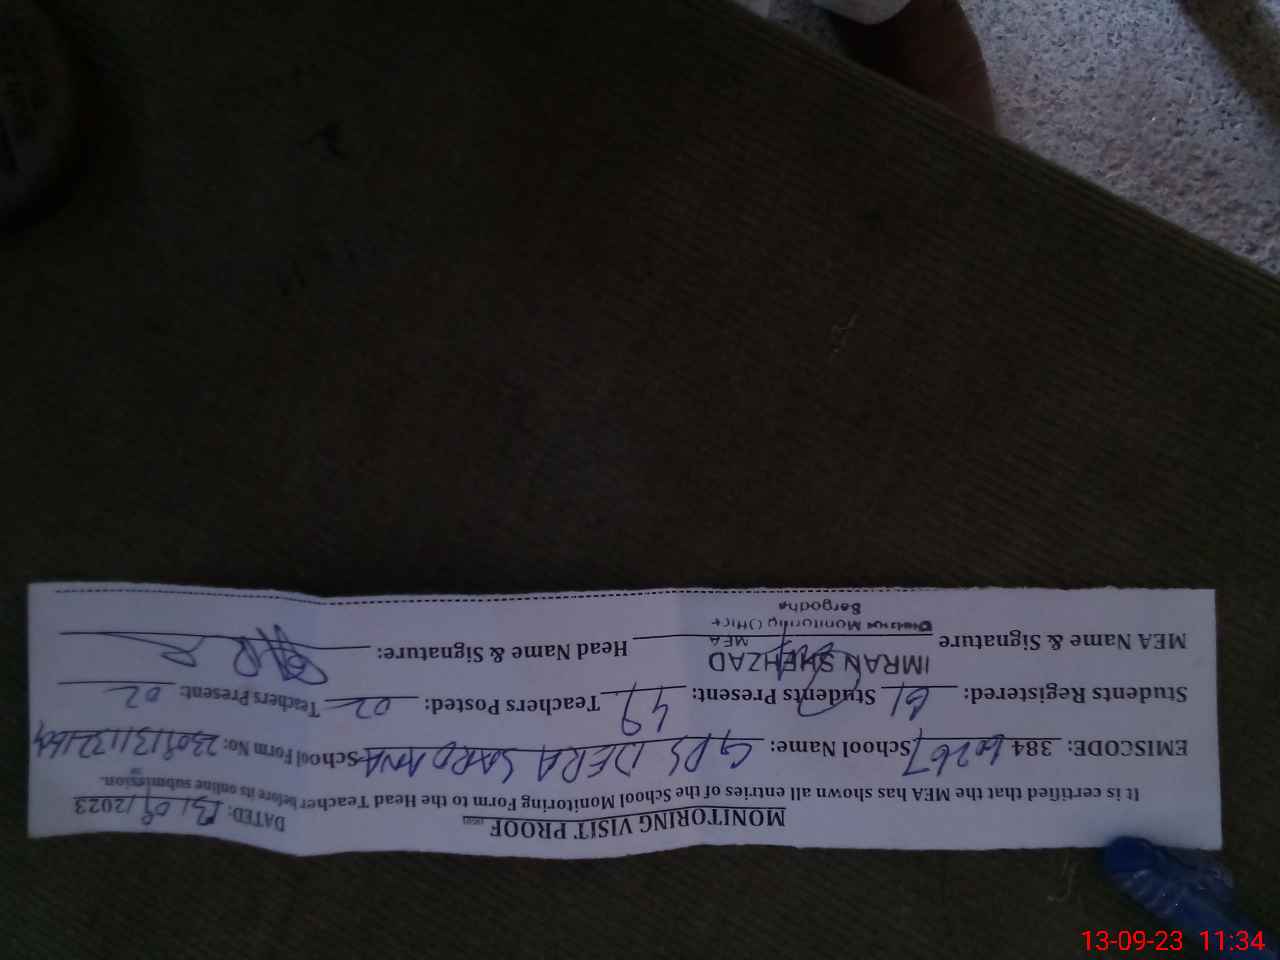 MONITORING VISIT PROOF
DATED: 13/09/2023
It is certified that the MEA has shown all entries of the School Monitoring Form to the Head Teacher before its online submission.
EMISCODE: 384 School Name: GPS DERA SARDANA School Form No:
Students Registered: 61 Students Present: 49 Teachers Posted: 02 Teachers Present: 02
IMRAN SHEHZAD
MEA Name & Signature MEA Head Name & Signature:
Monitoring Office
13-09-23 11:34